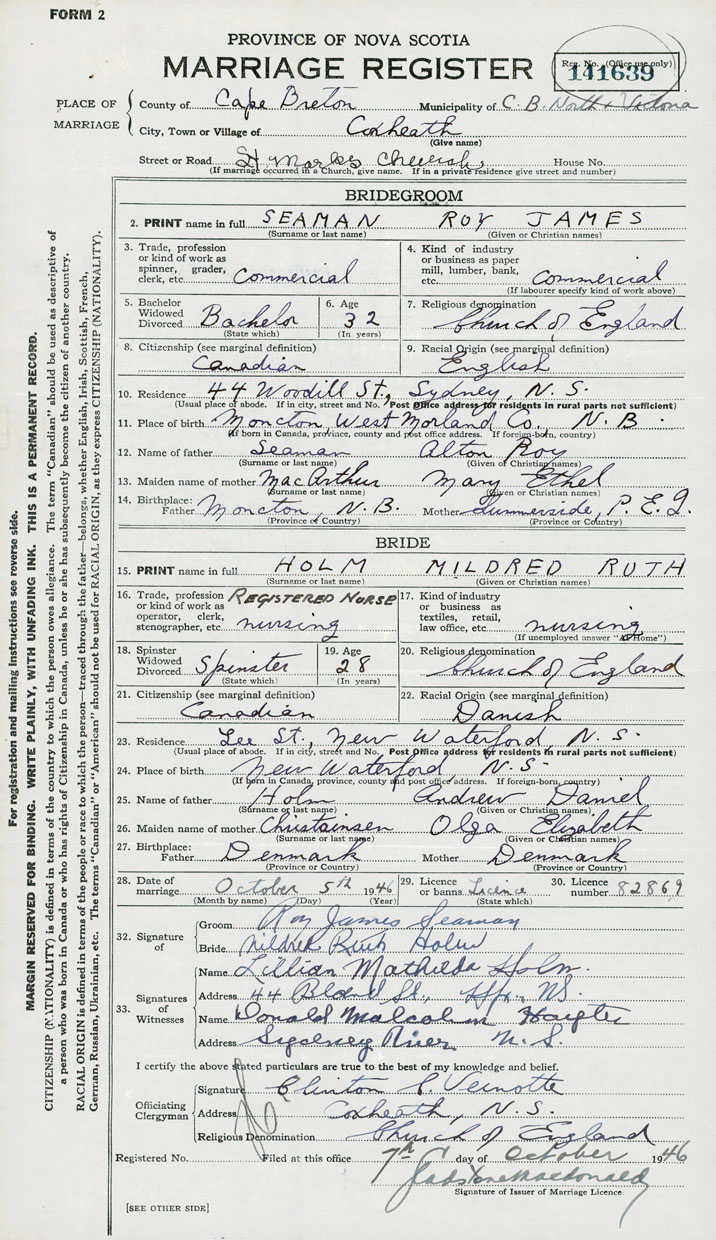 FORM 2
PROVINCE OF NOVA SCOTIA
MARRIAGE REGISTER
Reg. No. (Office use only)
141639
PLACE OF MARRIAGE
County of Cape Breton Municipality of C. B. North & Victoria
City, Town or Village of Coxheath
(Give name)
Street or Road St Marks Church, House No.
(If marriage occurred in a Church, give name. If in a private residence give street and number)
BRIDEGROOM
2. PRINT name in full SEAMAN ROY JAMES
(Surname or last name) (Given or Christian names)
3. Trade, profession or kind of work as spinner, grader, clerk, etc. Commercial
4. Kind of industry or business as paper mill, lumber, bank, etc. Commercial
(If labourer specify kind of work above)
5. Bachelor Widowed Divorced Bachelor
(State which)
6. Age 32
(In years)
7. Religious denomination Church of England
8. Citizenship (see marginal definition) Canadian
9. Racial Origin (see marginal definition) English
10. Residence 44 Woodill St., Sydney, N. S.
(Usual place of abode. If in city, street and No. Post Office address for residents in rural parts not sufficient)
11. Place of birth Moncton, West Morland Co., N. B.
(If born in Canada, province, county and post office address. If foreign-born, country)
12. Name of father Seaman Alton Roy
(Surname or last name) (Given of Christian names)
13. Maiden name of mother MacArthur Mary Ethel
(Surname or last name) (Given or Christian names)
14. Birthplace: Father Moncton, N. B. Mother Summerside, P. E. I.
(Province or Country) (Province or Country)
BRIDE
15. PRINT name in full HOLM MILDRED RUTH
(Surname or last name) (Given or Christian names)
16. Trade, profession or kind of work as operator, clerk, stenographer, etc. REGISTERED NURSE nursing
17. Kind of industry or business as textiles, retail, law office, etc. nursing
(If unemployed answer "At Home")
18. Spinster Widowed Divorced Spinster
(State which)
19. Age 28
(In years)
20. Religious denomination Church of England
21. Citizenship (see marginal definition) Canadian
22. Racial Origin (see marginal definition) Danish
23. Residence Lee St., New Waterford, N. S.
(Usual place of abode. If in city, street and No. Post Office address for residents in rural parts not sufficient)
24. Place of birth New Waterford, N. S.
(If born in Canada, province, county and post office address. If foreign-born, country)
25. Name of father Holm Andrew Daniel
(Surname or last name) (Given or Christian names)
26. Maiden name of mother Christainsen Olga Elizabeth
(Surname or last name) (Given or Christian names)
27. Birthplace: Father Denmark Mother Denmark
(Province or Country) (Province or Country)
28. Date of marriage October 5th 1946
(Month by name) (Day) (Year)
29. Licence or banns Licence
(State which)
30. Licence number 82869
32. Signature of
Groom Roy James Seaman
Bride Mildred Ruth Holm
33. Signatures of Witnesses
Name Lillian Mathilda Holm.
Address 44 Bland St., Hfx. NS.
Name Donald Malcolm Hayter
Address Sydney River N. S.
I certify the above stated particulars are true to the best of my knowledge and belief.
Officiating Clergyman
Signature Clinton C. Veinotte
Address Coxheath, N. S.
Religious Denomination Church of England
Registered No. Filed at this office 7th day of October 1946
Gladstone Macdonald
Signature of Issuer of Marriage Licence
[SEE OTHER SIDE]
For registration and mailing instructions see reverse side.
MARGIN RESERVED FOR BINDING. WRITE PLAINLY, WITH UNFADING INK. THIS IS A PERMANENT RECORD.
CITIZENSHIP (NATIONALITY) is defined in terms of the country to which the person owes allegiance. The term "Canadian" should be used as descriptive of
a person who was born in Canada or who has rights of Citizenship in Canada, unless he or she has subsequently become the citizen of another country.
RACIAL ORIGIN is defined in terms of the people or race to which the person—traced through the father—belongs, whether English, Irish, Scottish, French,
German, Russian, Ukrainian, etc. The terms "Canadian" or "American" should not be used for RACIAL ORIGIN, as they express CITIZENSHIP (NATIONALITY).